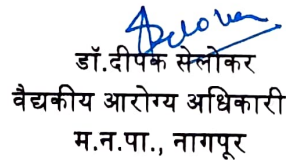 डॉ.दीपक सेलोकर
वैद्यकीय आरोग्य अधिकारी
म.न.पा., नागपूर